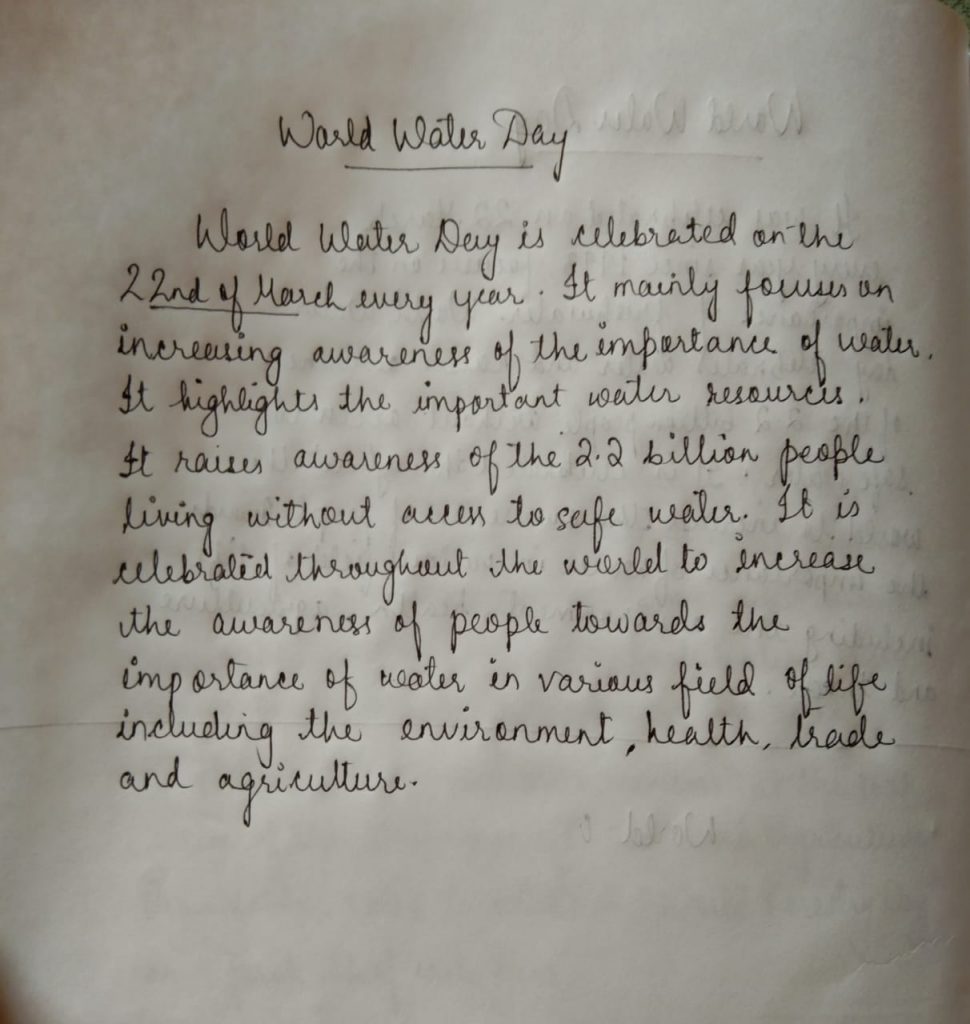 World Water Day
World Water Day is celebrated on the
22nd of March every year. It mainly focuses on
increasing awareness of the importance of water.
It highlights the important water resources.
It raises awareness of the 2.2 billion people
living without access to safe water. It is
celebrated throughout the world to increase
the awareness of people towards the
importance of water in various field of life
including the environment, health, trade
and agriculture.